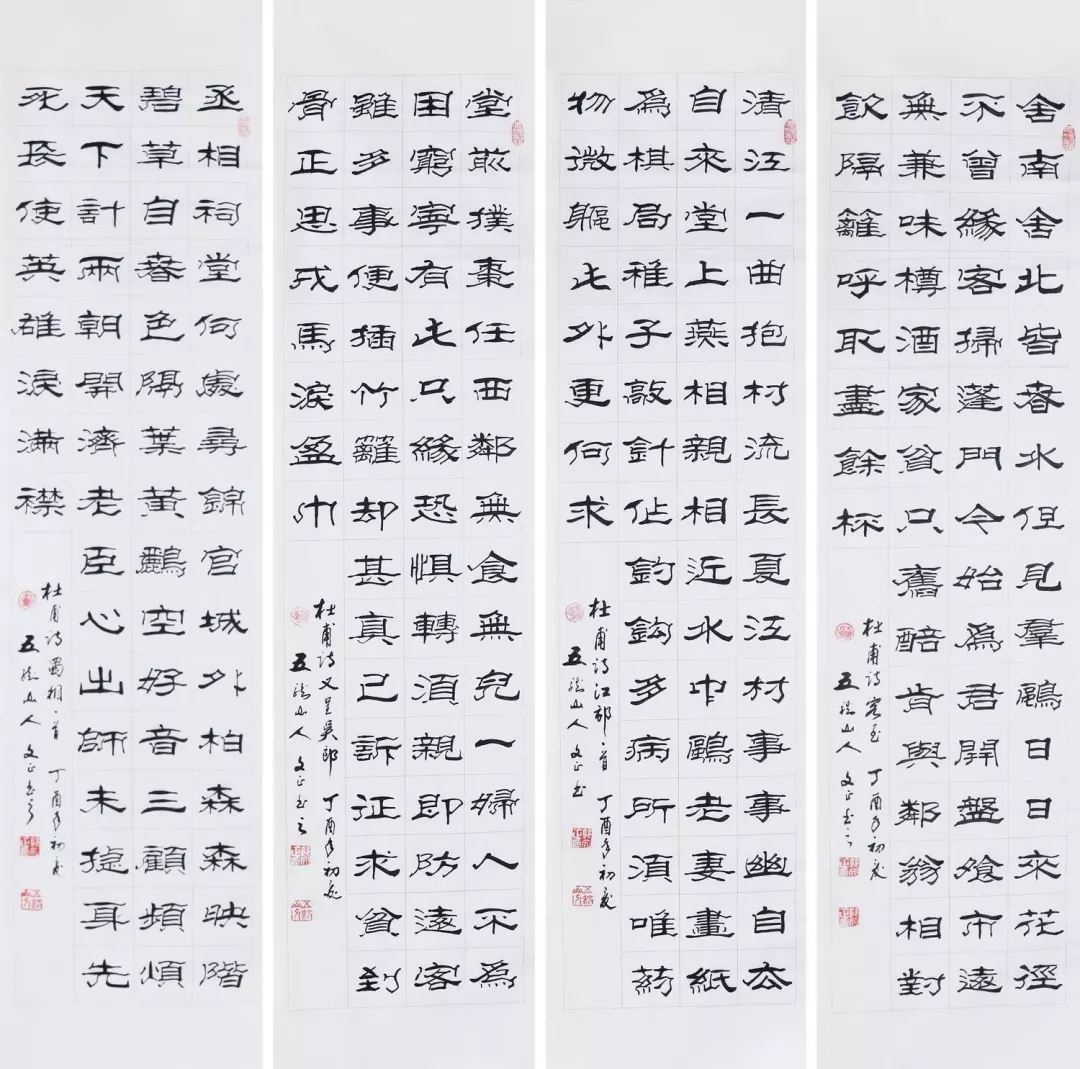 舍南舍北皆春水但見羣鷗日日來花徑
不曾緣客掃蓬門今始爲君開盤飧市遠
無兼味樽酒家貧只舊醅肯與鄰翁相對
飲隔籬呼取盡餘杯
杜甫诗客至 丁酉年初夏
五山人 文正書之
清江一曲抱村流長夏江村事事幽自去
自來堂上燕相親相近水中鷗老妻畫紙
爲棋局稚子敲針作釣鉤多病所須唯藥
物微軀此外更何求
杜甫诗江邨一首 丁酉年初夏
五山人 文正書
堂前撲棗任西鄰無食無兒一婦人不爲
困窮寧有此只緣恐懼轉須親即防遠客
雖多事便插竹籬却甚真已訴征求貧到
骨正思戎馬淚盈巾
杜甫诗又呈吳郎 丁酉年初夏
五山人 文正書之
丞相祠堂何處尋錦官城外柏森森映階
碧草自春色隔葉黃鸝空好音三顧頻煩
天下計兩朝開濟老臣心出師未捷身先
死長使英雄淚滿襟
杜甫诗蜀相一首 丁酉年初夏
五山人 文正書之